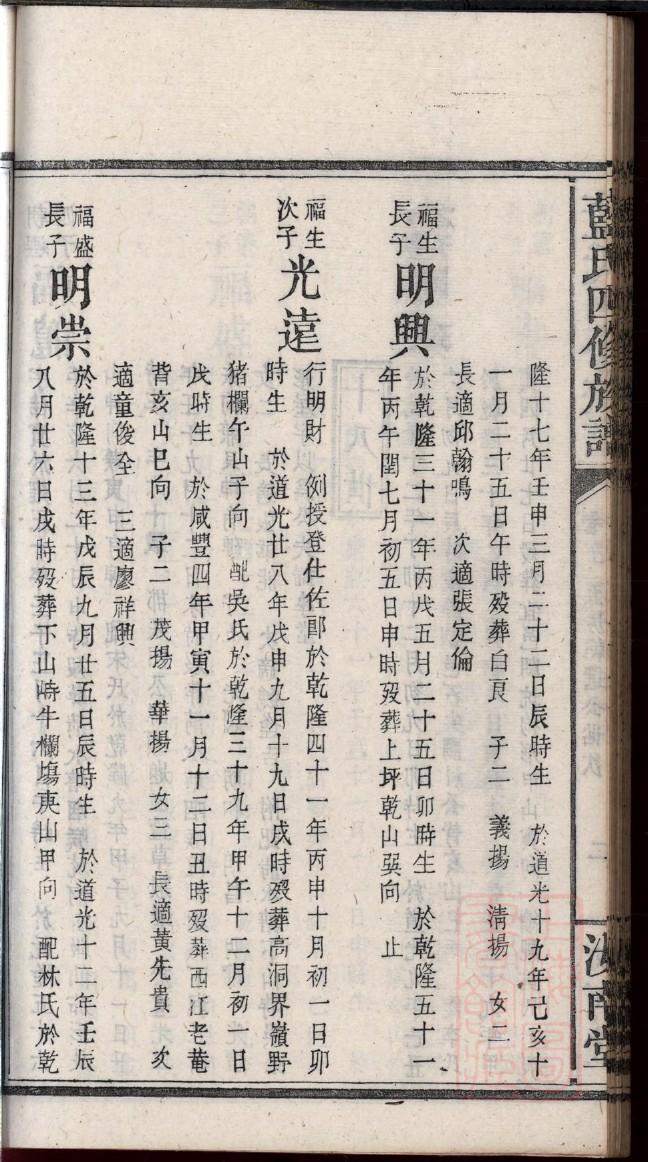 藍氏四修族譜
汝南堂
隆十七年壬申三月二十二日辰時生 於道光十九年己亥十
一月二十五日午時歿葬白頁 子二 義揚 清揚 女二
長適邱翰鳴 次適張定倫
福生
長子
明興
於乾隆三十一年丙戌五月二十五日卯時生 於乾隆五十一
年丙午閏七月初五日申時歿葬上坪乾山巽向 止
福生
次子
光遠
行明財 例授登仕佐郎於乾隆四十一年丙申十月初一日卯
時生 於道光廿八年戊申九月十九日戌時歿葬高洞界嶺野
猪欄午山子向 配吳氏於乾隆三十九年甲午十二月初一日
戌時生 於咸豐四年甲寅十一月十二日丑時歿葬西江老菴
背亥山巳向 子二 茂揚 華揚 女三 長適黃先貴 次
適童俊全 三適廖祥興
福盛
長子
明崇
於乾隆十三年戊辰九月廿五日辰時生 於道光十二年壬辰
八月廿六日戌時歿葬下山時牛欄塲庚山甲向 配林氏於乾